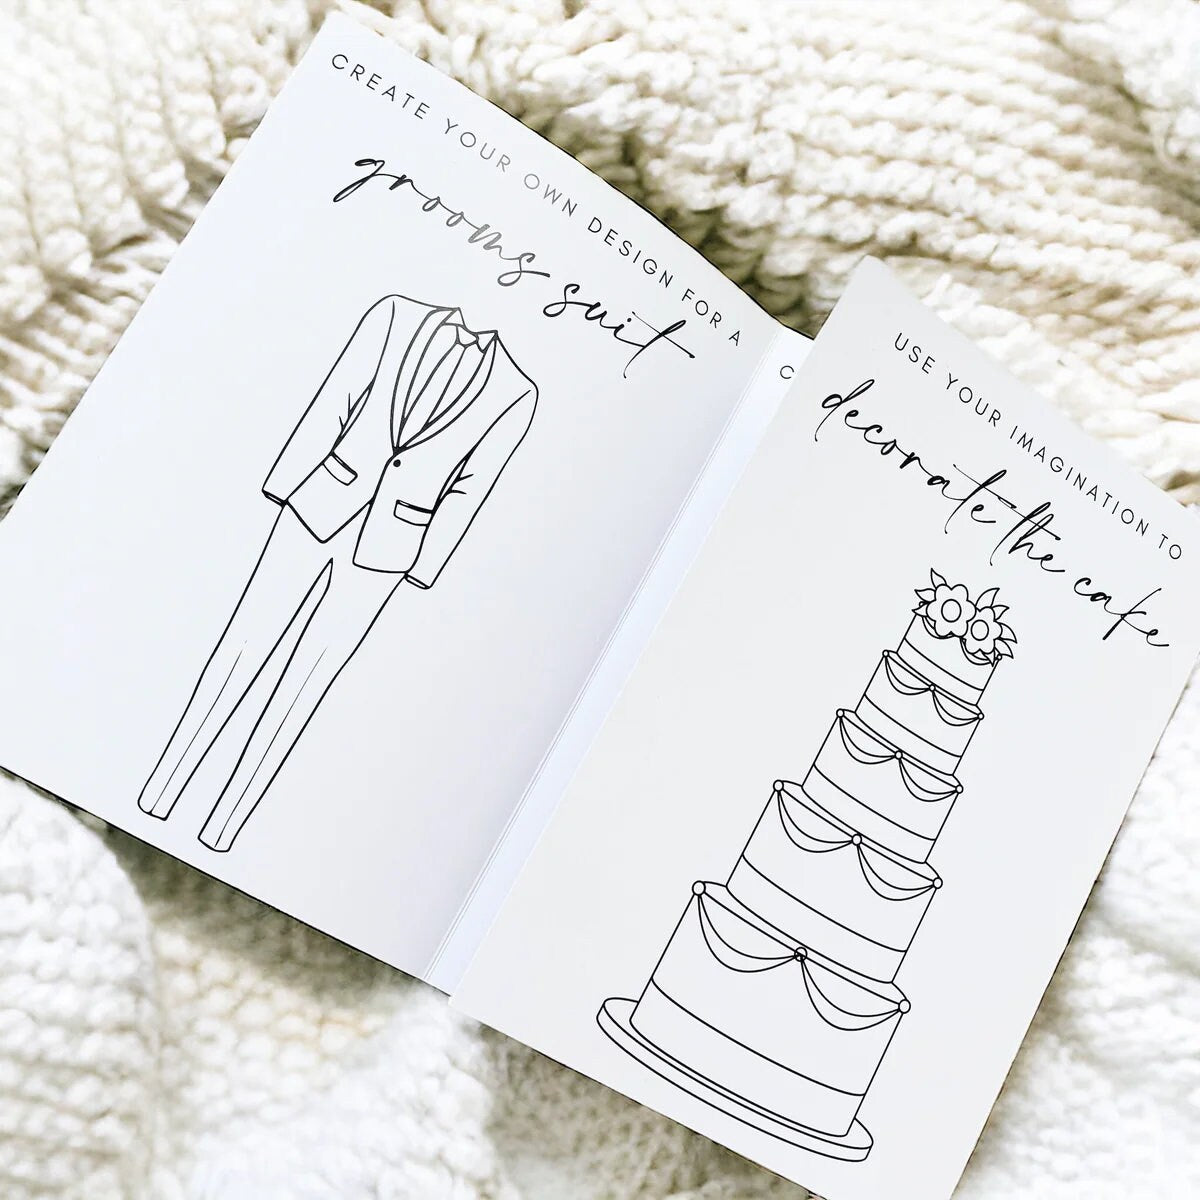 CREATE YOUR OWN DESIGN FOR A
grooms suit
C
USE YOUR IMAGINATION TO
decorate the cake